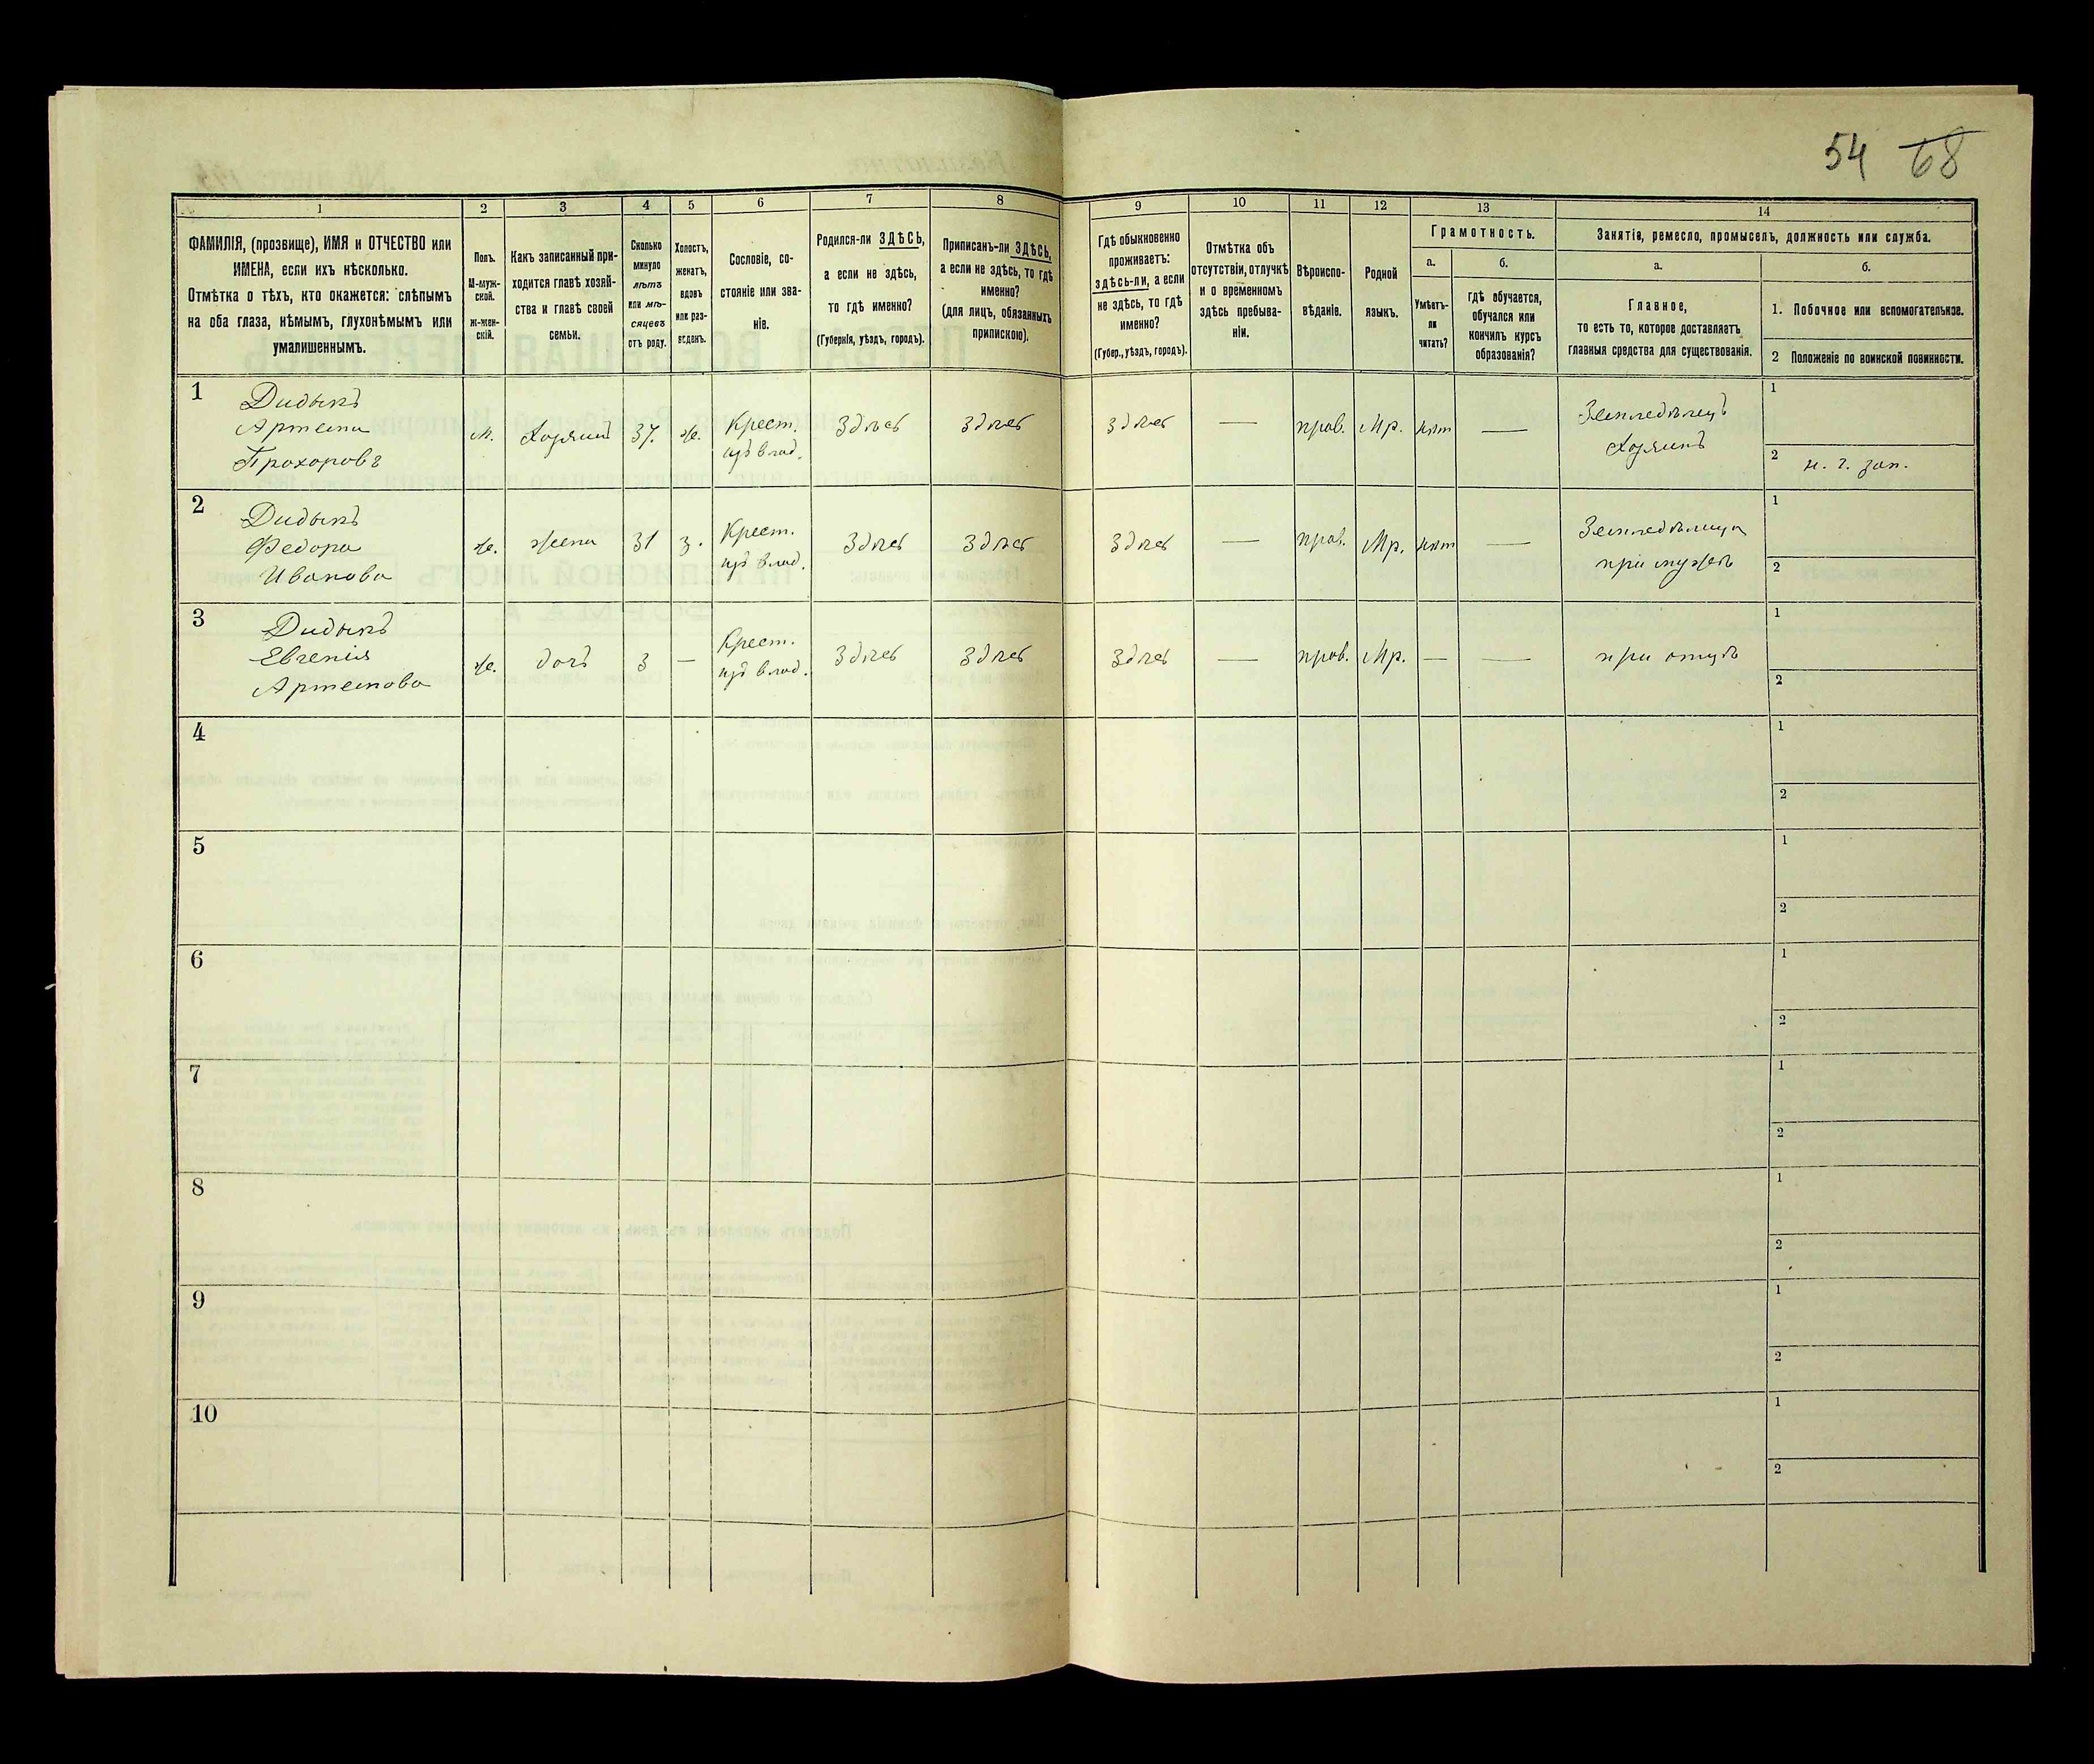 54 68
1 2 3 4 5 6 7 8 9 10 11 12 13 14
ФАМИЛІЯ, (прозвище), ИМЯ и ОТЧЕСТВО или
ИМЕНА, если ихъ нѣсколько.
Отмѣтка о тѣхъ, кто окажется: слѣпымъ
на оба глаза, нѣмымъ, глухонѣмымъ или
умалишеннымъ.
Полъ.
М-муж-
ской.
ж-жен-
скій.
Какъ записанный при-
ходится главѣ хозяй-
ства и главѣ своей
семьи.
Сколько
минуло
лѣтъ
или мѣ-
сяцевъ
отъ роду.
Холостъ,
женатъ,
вдовъ
или раз-
веденъ.
Сословіе, со-
стояніе или зва-
ніе.
Родился-ли ЗДѢСЬ,
а если не здѣсь,
то гдѣ именно?
(Губернія, уѣздъ, городъ).
Приписанъ-ли ЗДѢСЬ,
а если не здѣсь, то гдѣ
именно?
(для лицъ, обязанныхъ
припискою).
Гдѣ обыкновенно
проживаетъ:
здѣсь-ли, а если
не здѣсь, то гдѣ
именно?
(Губер., уѣздъ, городъ).
Отмѣтка объ
отсутствіи, отлучкѣ
и о временномъ
здѣсь пребыва-
ніи.
Вѣроиспо-
вѣданіе.
Родной
языкъ.
Грамотность.
а.
Умѣетъ-
ли
читать?
б.
гдѣ обучается,
обучался или
кончилъ курсъ
образованія?
Занятіе, ремесло, промыселъ, должность или служба.
а.
Главное,
то есть то, которое доставляетъ
главныя средства для существованія.
б.
1. Побочное или вспомогательное.
2 Положеніе по воинской повинности.
1
Дидыкъ
Артемъ
Прохоровъ
м.
Хозяинъ
37.
ж.
Крест.
изъ влад.
Здѣсь
Здѣсь
Здѣсь
—
прав.
Мр.
нѣт
—
Земледѣлецъ
Хозяинъ
1
2 н. г. зап.
2
Дидыкъ
Федора
Иванова
ж.
жена
31
з.
Крест.
изъ влад.
Здѣсь
Здѣсь
Здѣсь
—
прав.
Мр.
нѣт
—
Земледѣлица
при мужѣ
1
2
3
Дидыкъ
Евгенія
Артемова
ж.
дочь
3
—
Крест.
изъ влад.
Здѣсь
Здѣсь
Здѣсь
—
прав.
Мр.
—
—
при отцѣ
1
2
4
1
2
5
1
2
6
1
2
7
1
2
8
1
2
9
1
2
10
1
2